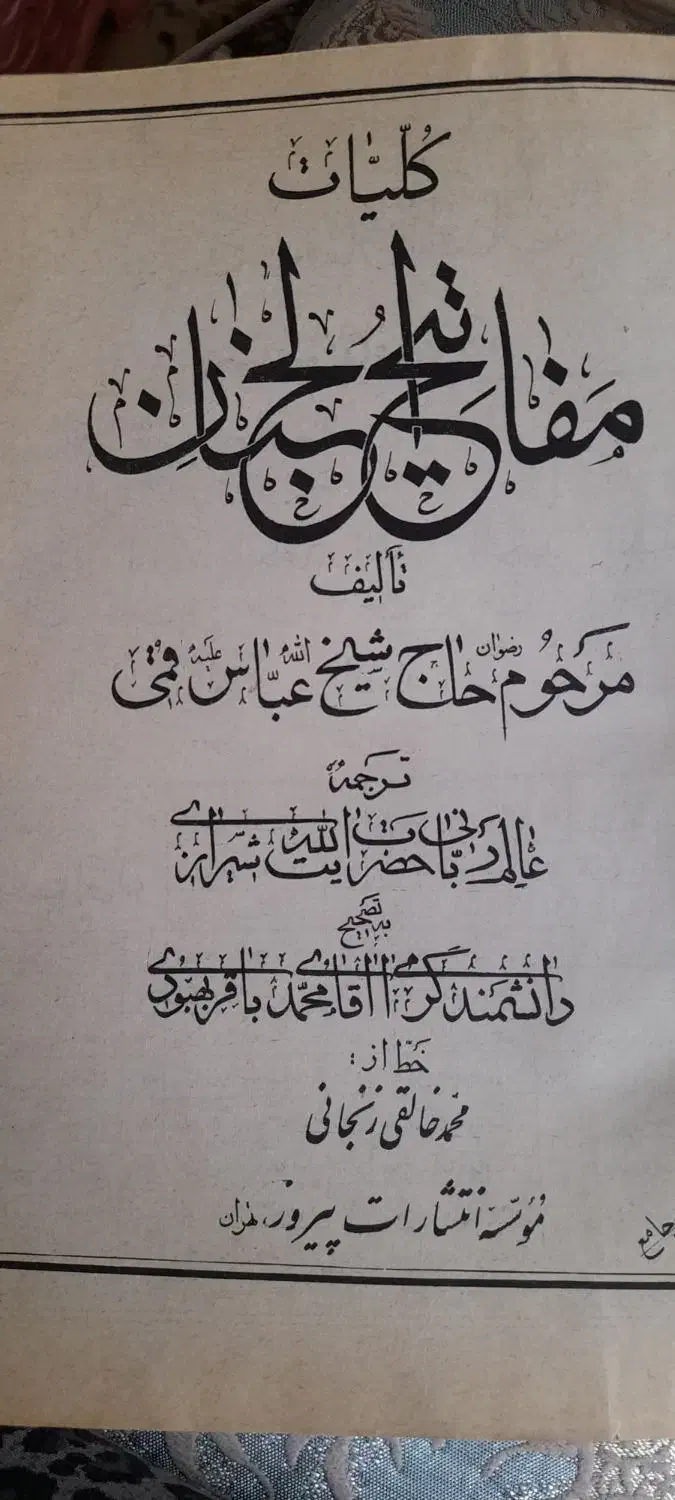 کُلّیّات
مَفاتیحُ الجِنان
تألیف
مَرحُوم حاج شیخ عبّاس قمّی رضوان اللّه علیه
ترجمه
عالِم ربّانی حضرت آیت اللّه شیرازی
به تصحیح
دانشمند گرامی آقای محمّد باقر بهبودی
خطّ از:
محمّد خالقی زنجانی
مؤسّسه انتشارات پیروز، طهران
جامع